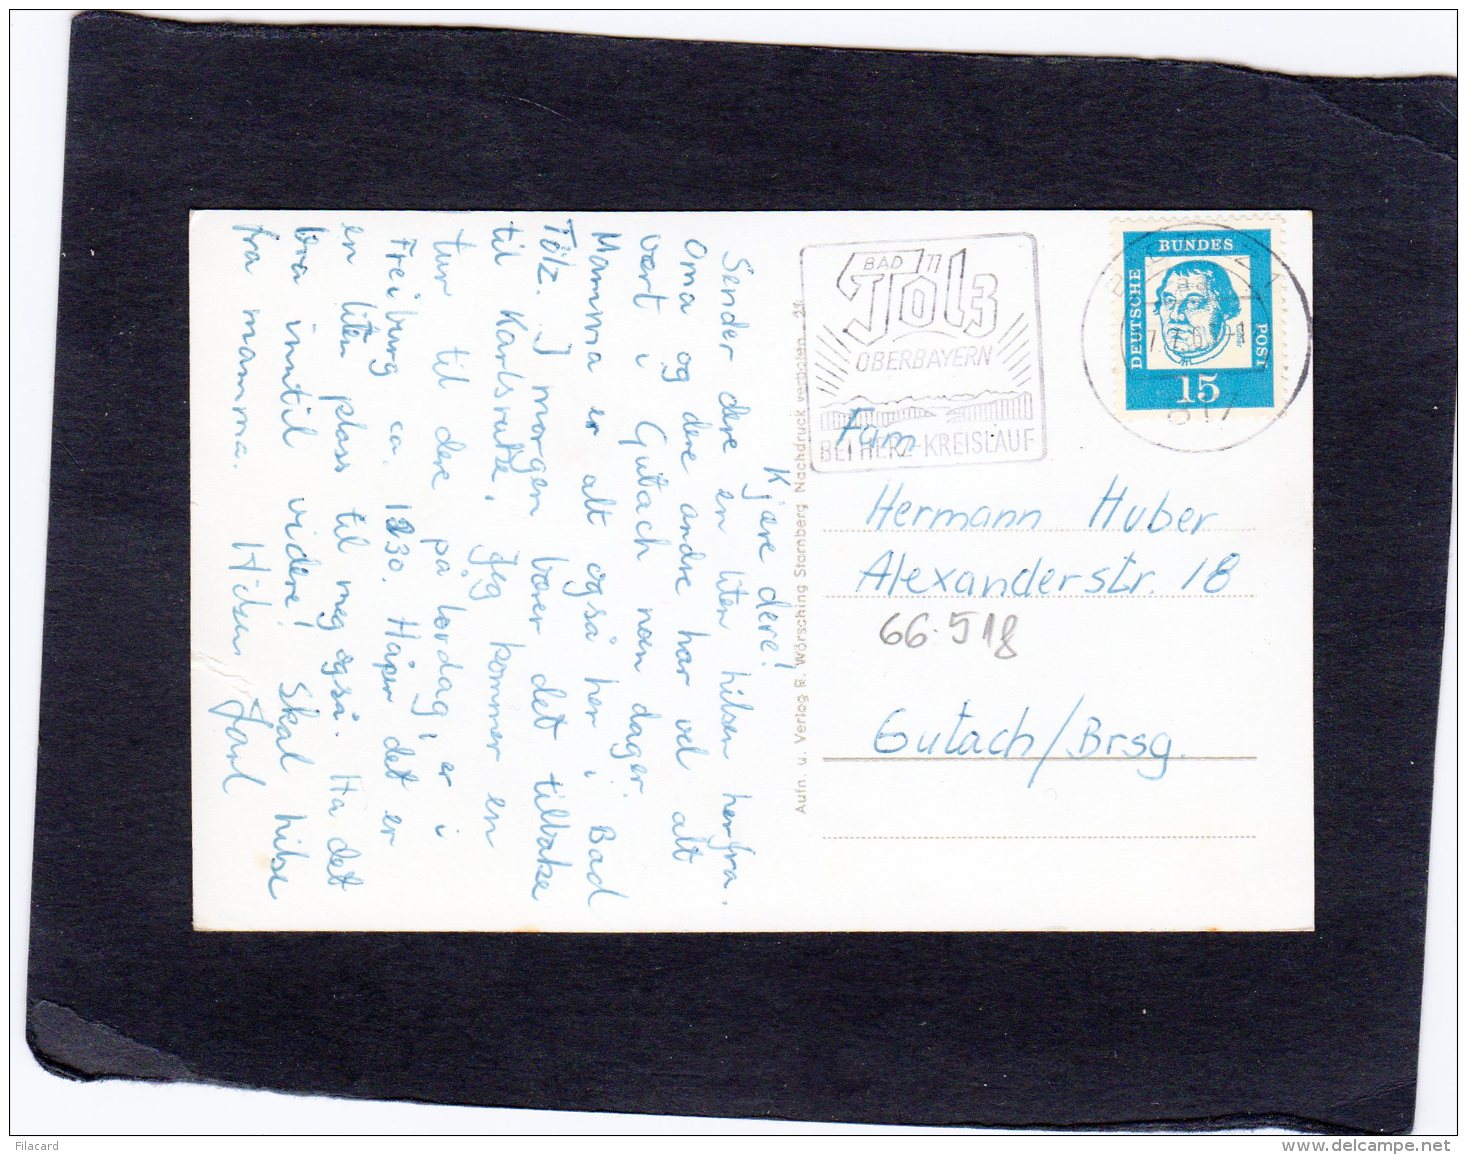 Kjære dere!
Sender dere en liten hilsen herfra.
Oma og dere andre har vel alt
vært i Gutach noen dager.
Mamma er alt også her i Bad
Tölz. I morgen bærer det tilbake
til Karlsruhe. Jeg kommer en
tur til dere på lørdag, er i
Freiburg ca. 1230. Håper det er
en liten plass til meg også. Ha det
bra inntil videre! Skal hilse
fra mamma. Hilsen Jarl
Aufn. u. Verlag R. Wörsching Starnberg Nachdruck verboten 21
BAD
Tölz
OBERBAYERN
BEI HERZ-KREISLAUF
DEUTSCHE
BUNDES
POST
15
817
Fam
Hermann Huber
Alexanderstr. 18
66.518
Gutach/Brsg.
Filacard
www.delcampe.net